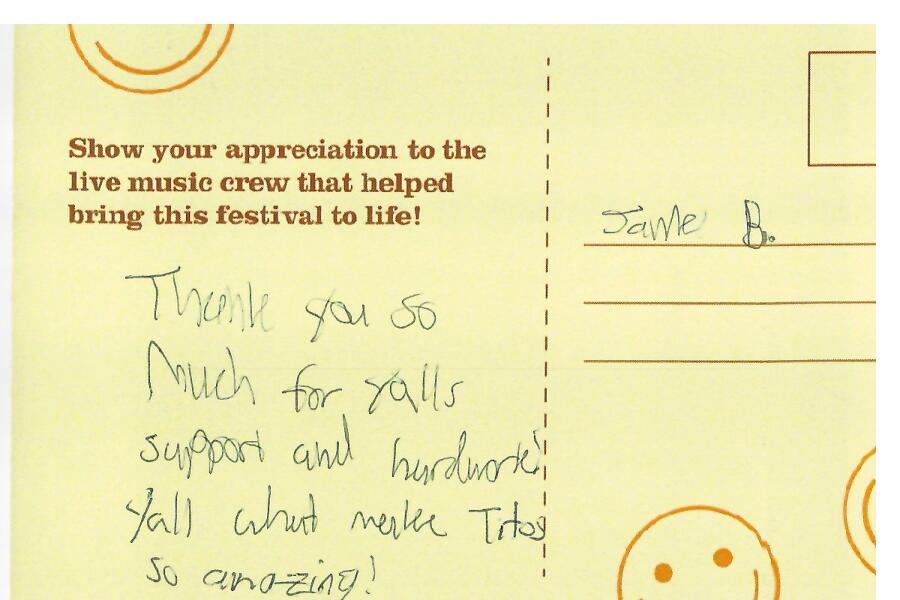 Show your appreciation to the
live music crew that helped
bring this festival to life!
Thank you so
Much for yalls
support and hardwork!
Yall what make Titos
so amazing!
Jamie B.